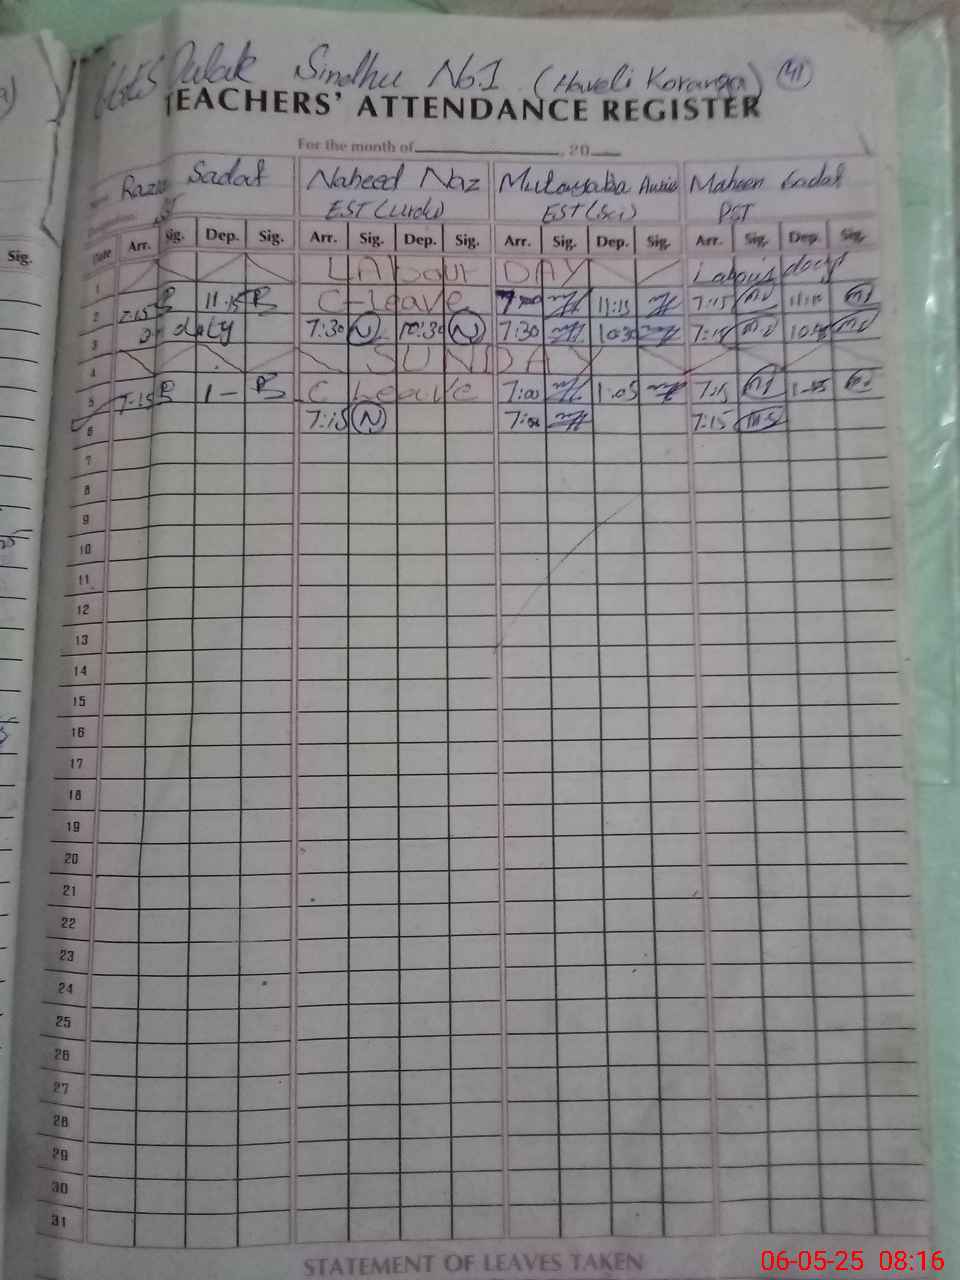 GGES Dulak Sindhu No.1 (Haveli Koranga) 41
TEACHERS' ATTENDANCE REGISTER
For the month of , 20
Sadaf Naheed Naz Mutayyaba Maheen Sadaf
EST (Urdu) EST (Sci) PST
Date Arr. Sig. Dep. Sig. Arr. Sig. Dep. Sig. Arr. Sig. Dep. Sig. Arr. Sig. Dep. Sig.
Sig.
1 LAbour DAY Labour days
2 7:15 11:15 C-leave 7:00 11:15 7:15 11:15
3 on duty 7:30 N 10:30 N 7:30 10:30 7:15
4 SUNDAY
5 7:15 1- C Leave 7:00 1:05 7:15
6 7:15 N 7:00 7:15
7
8
9
10
11
12
13
14
15
16
17
18
19
20
21
22
23
24
25
26
27
28
29
30
31
STATEMENT OF LEAVES TAKEN
06-05-25 08:16